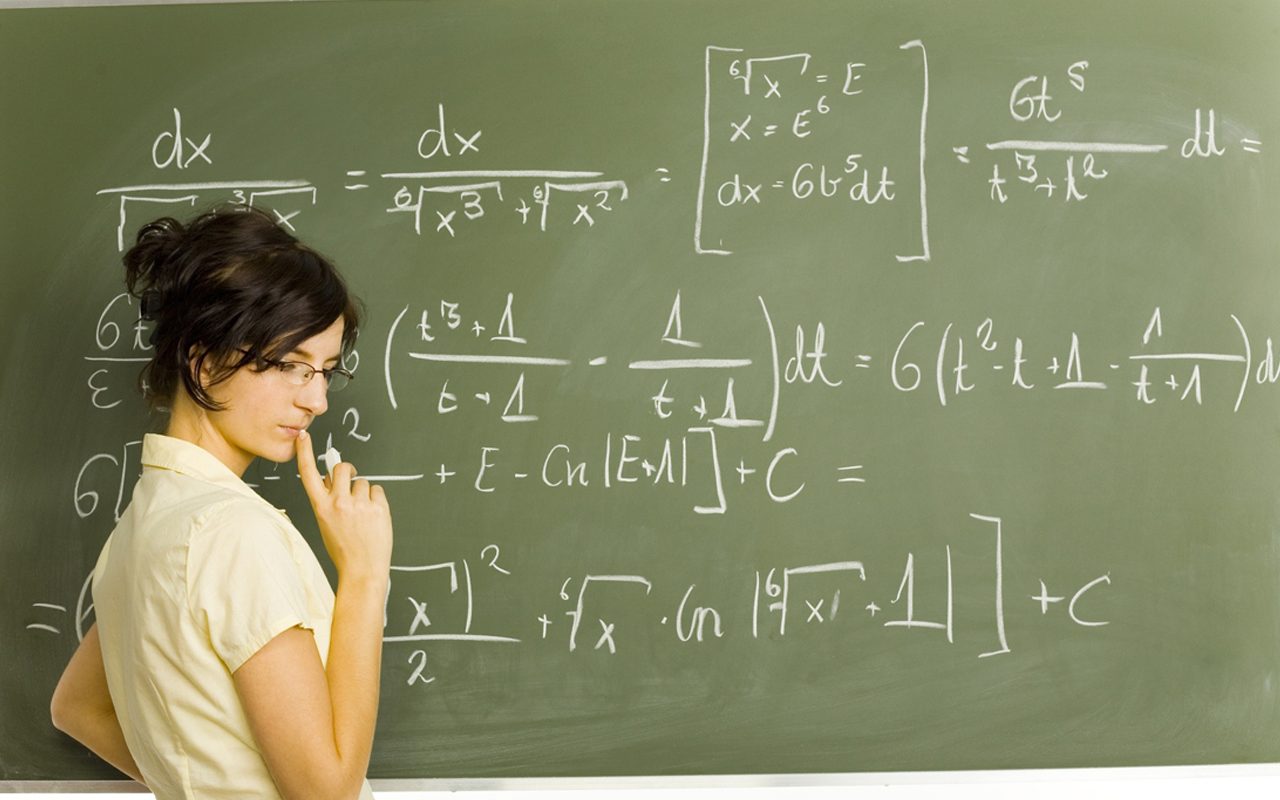 dx / (√ ∛x) = dx / (⁶√x³ + ⁶√x²) = [ ⁶√x = E  x = E⁶  dx = 6t⁵dt ] = 6t⁵ / (t³+t²) dt =
6t / ε ( (t³+1) / (t+1) - 1 / (t+1) ) dt = 6 (t² - t + 1 - 1 / (t+1)) d
6 [ t² + E - Cn |E+1| ] + C =
= x)² / 2 + ⁶√x · Cn |⁶√x + 1| ] + C